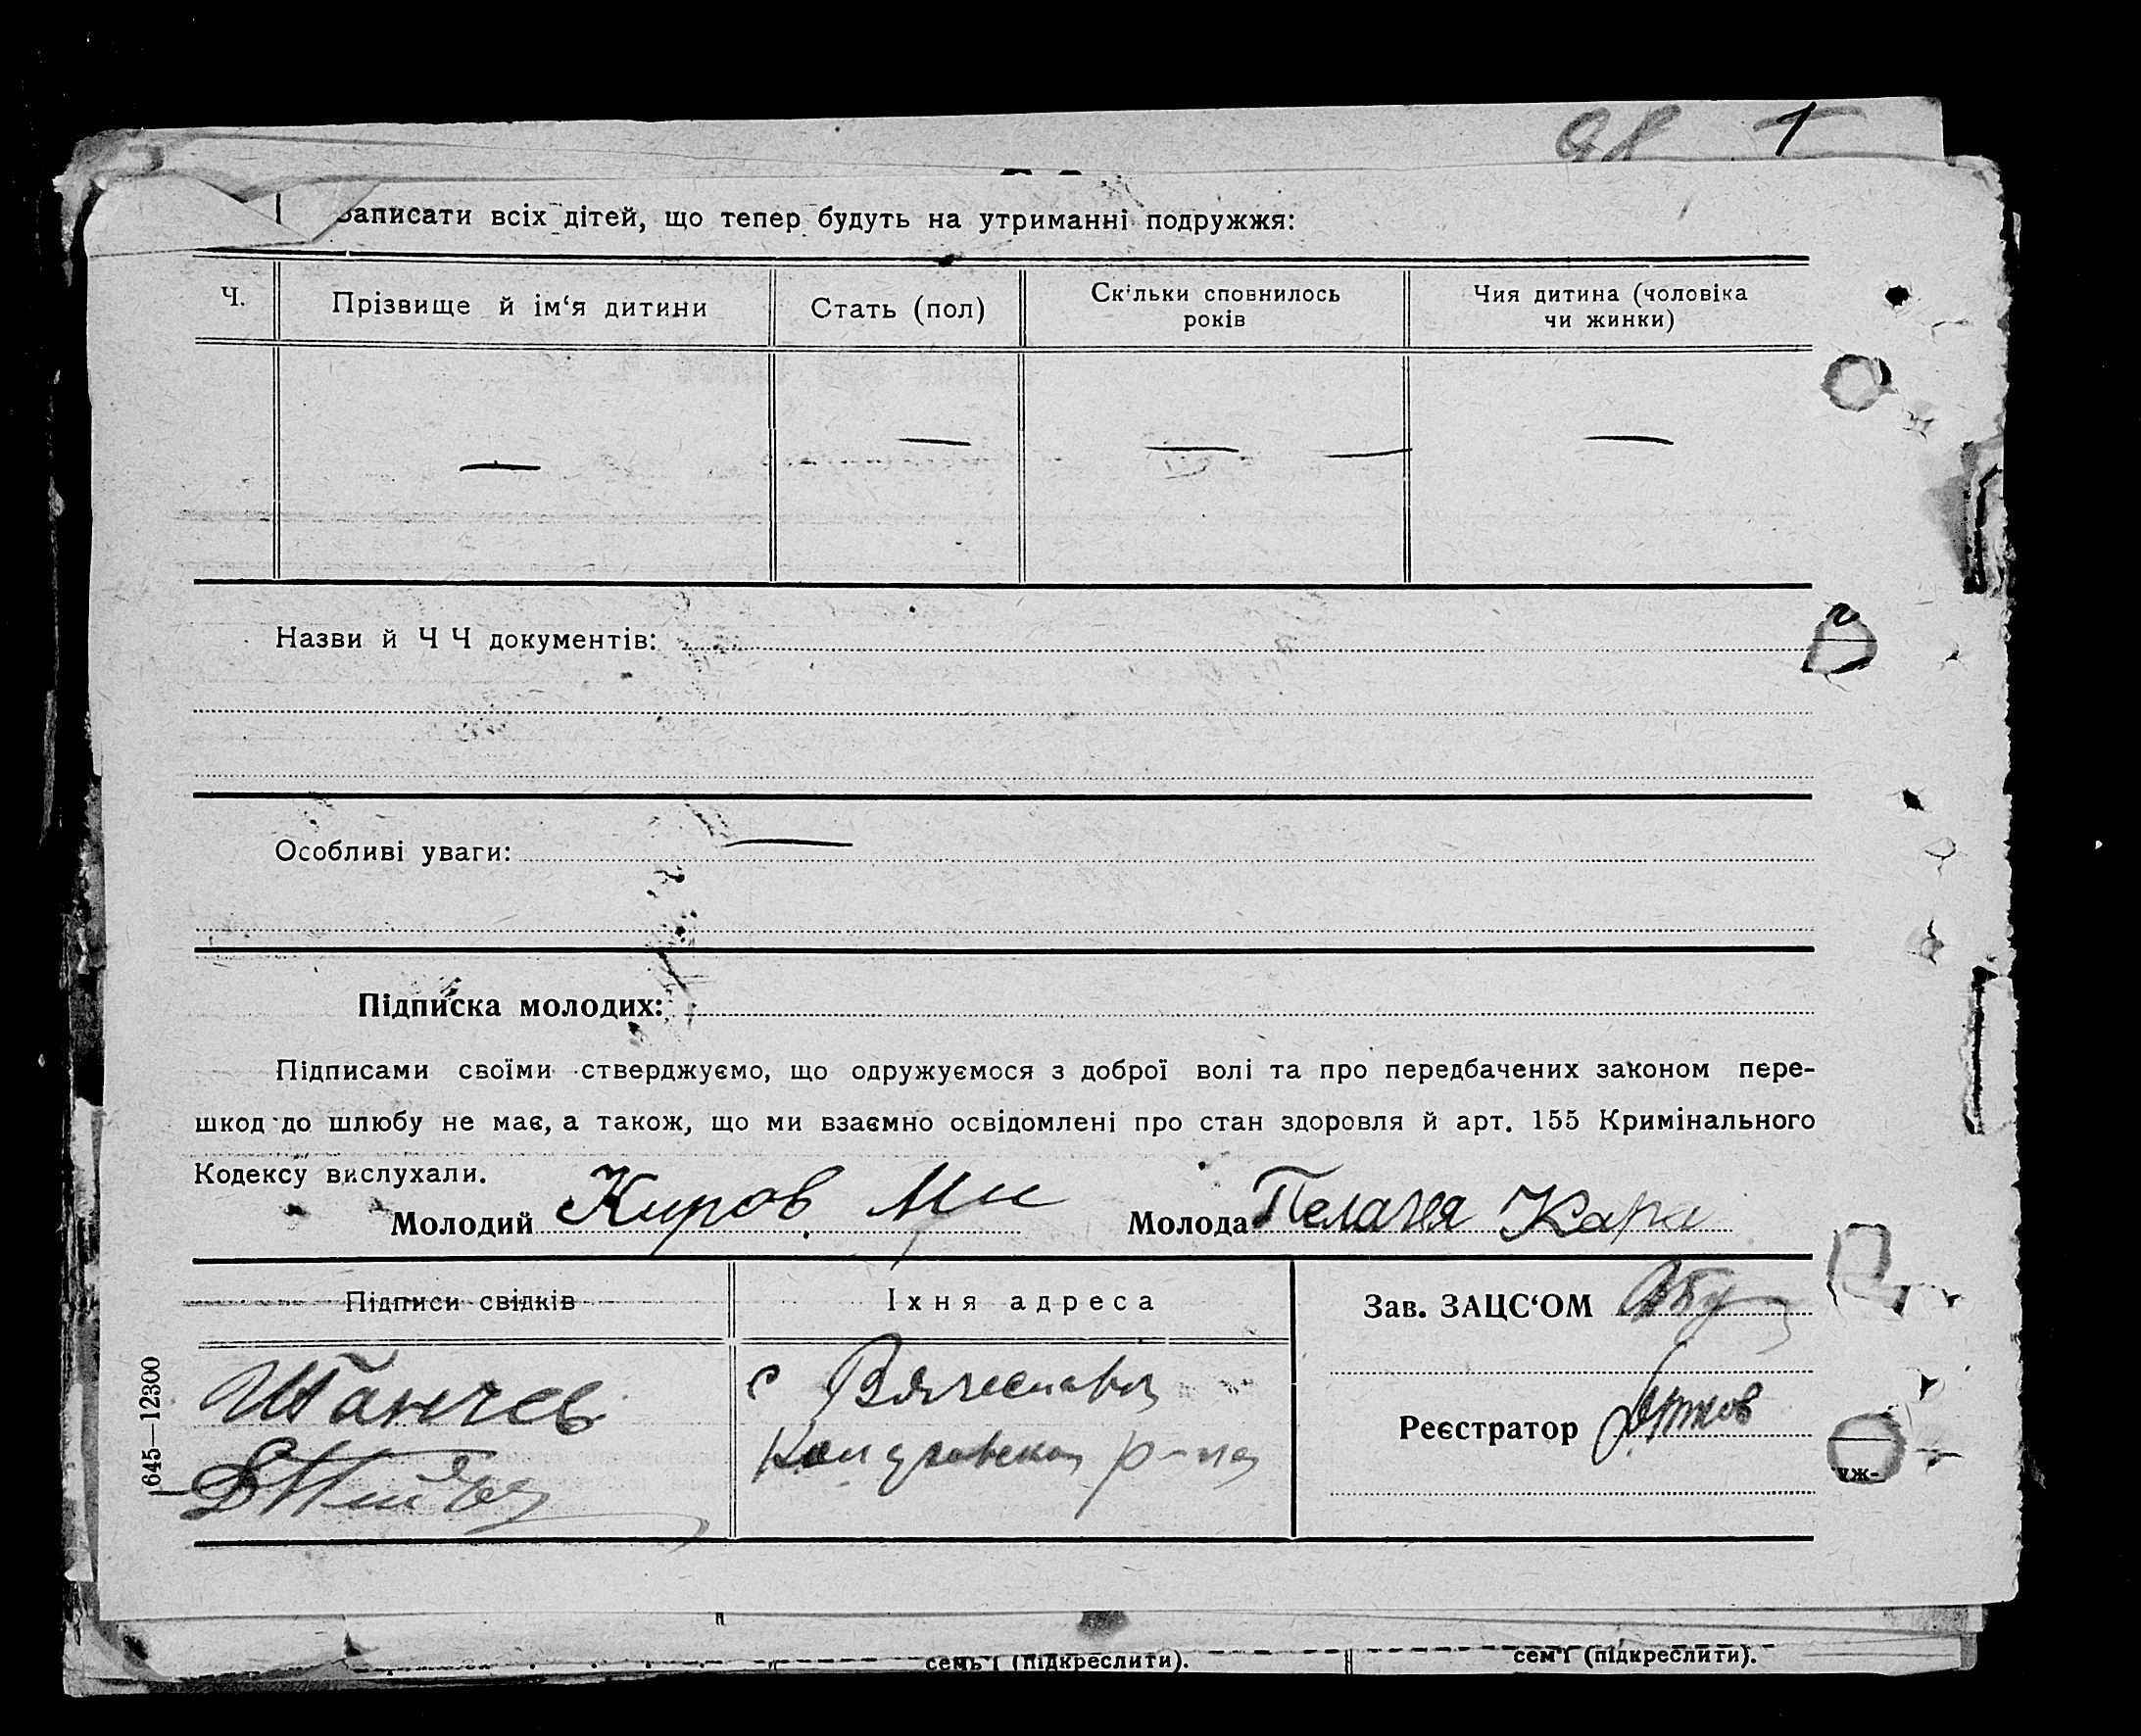 98 1
Записати всіх дітей, що тепер будуть на утриманні подружжя:
Ч.
Прізвище й ім‘я дитини
Стать (пол)
Скільки сповнилось
років
Чия дитина (чоловіка
чи жинки)
— — — — —
Назви й Ч Ч документів:
Особливі уваги: —
Підписка молодих:
Підписами своїми стверджуємо, що одружуємося з доброї волі та про передбачених законом пере-
шкод до шлюбу не має, а також, що ми взаємно освідомлені про стан здоровля й арт. 155 Кримінального
Кодексу вислухали.
Молодий Киров Молода Пелагея Кара
Підписи свідків
Їхня адреса
Зав. ЗАЦС‘ОМ
с Вячеславка
р-на
Реєстратор
645—12300
уж-
семь‘ї (підкреслити).
сем‘ї (підкреслити).